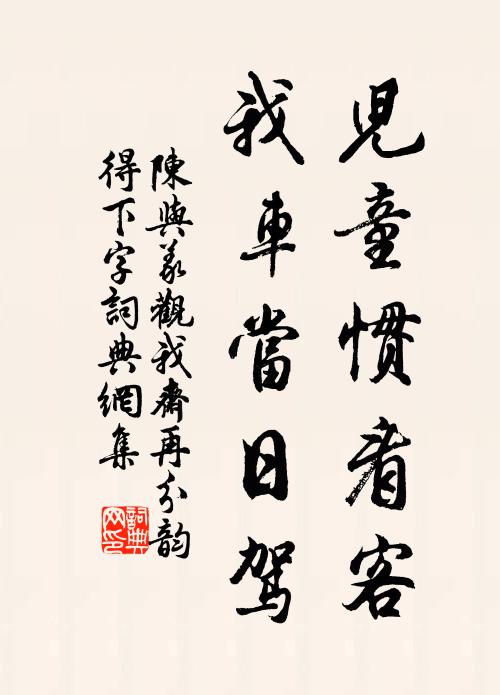 兒童慣看客
我車當日駕
陳與義觀我齋再分韵
得下字詞典網集
詞典
网印